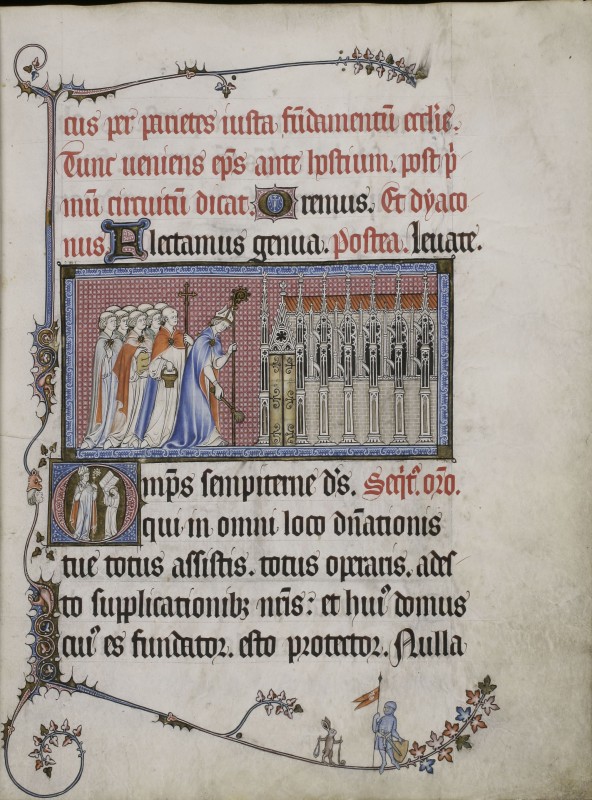 cus per parietes iusta fūdamentū eccl'ie.
Tunc ueniens ep̄s ante hostium. post p̄
mū circuitū dicat. Oremus. Et dyaco
nus. Flectamus genua. Postea. Leuate.
Omp̄s sempiterne d's. Seqīt'. orō.
qui in omni loco dn̄ationis
tue totus assistis. totus operaris. ades
to supplicationibꝫ nr̄is: et huiꝰ domus
cuiꝰ es fundator. esto protector. Nulla